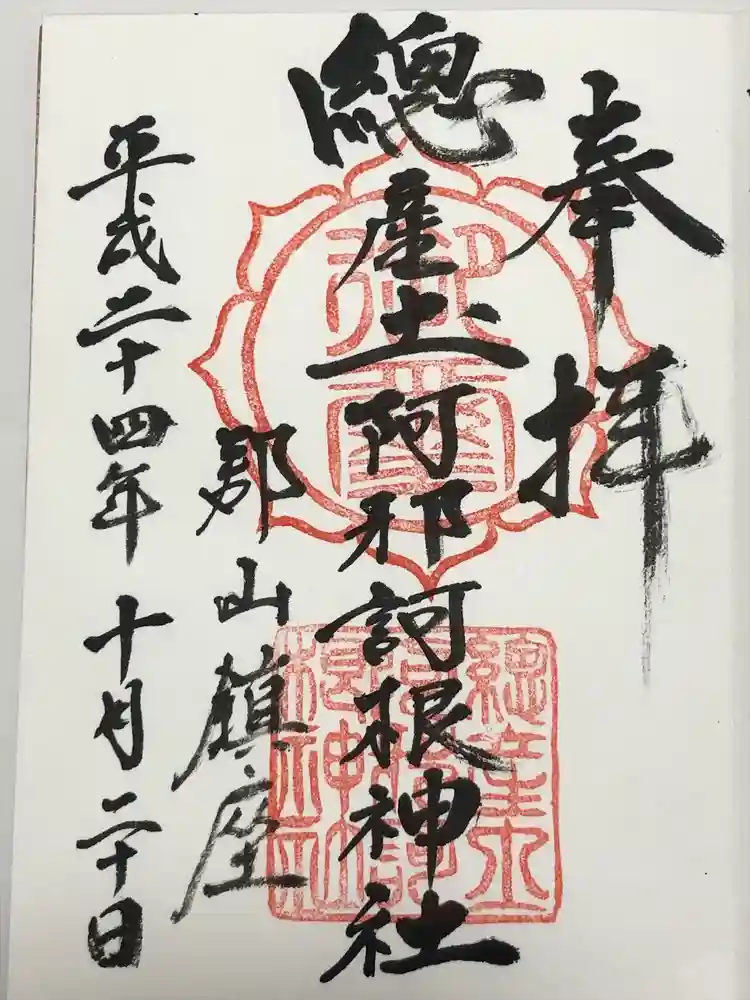 奉拝
總産土阿邪訶根神社
郡山鎮座
平成二十四年十月二十日
總産土
根神社